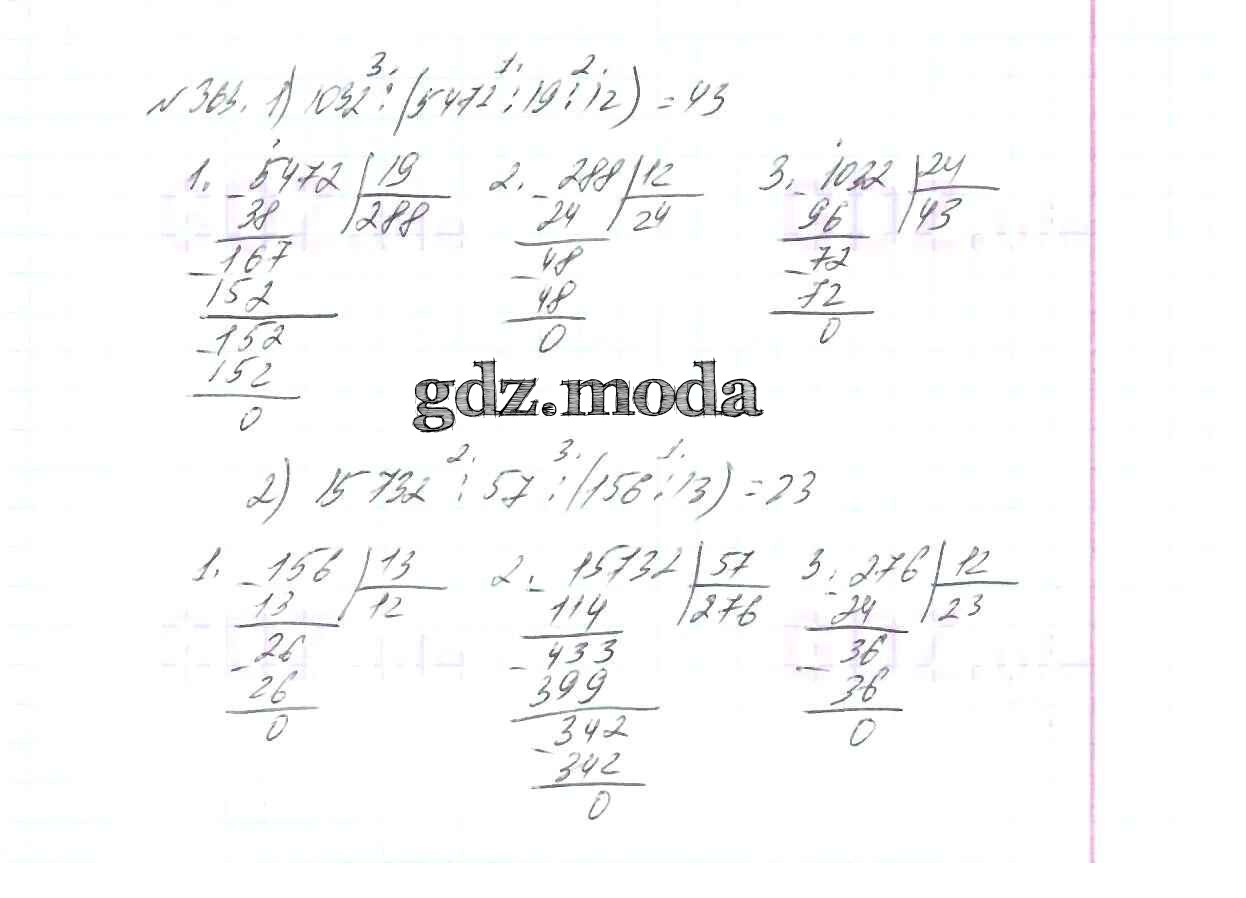 3. 1. 2.
№ 363. 1) 1032 : (5472 : 19 : 12) = 43
1. 5472 | 19 2. 288 | 12 3. 1032 | 24
38 288 24 24 96 43
167 48 72
152 48 72
152 0 0
152
0
gdz.moda
2. 3. 1.
2) 15 732 : 57 : (156 : 13) = 23
1. 156 | 13 2. 15732 | 57 3. 276 | 12
13 12 114 276 24 23
26 433 36
26 399 36
0 342 0
342
0